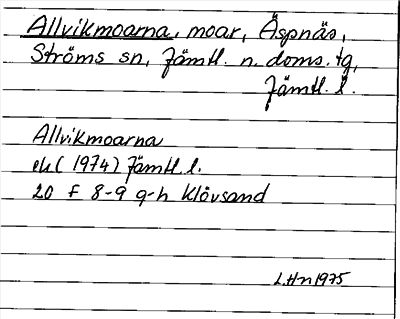 Allvikmoarna, moar, Äspnäs,
Ströms sn, Jämtl. n. doms. tg,
Jämtl. l.
Allvikmoarna
ek. (1974) Jämtl. l.
20 F 8-9 g-h Klövsand
L.Hn 1975